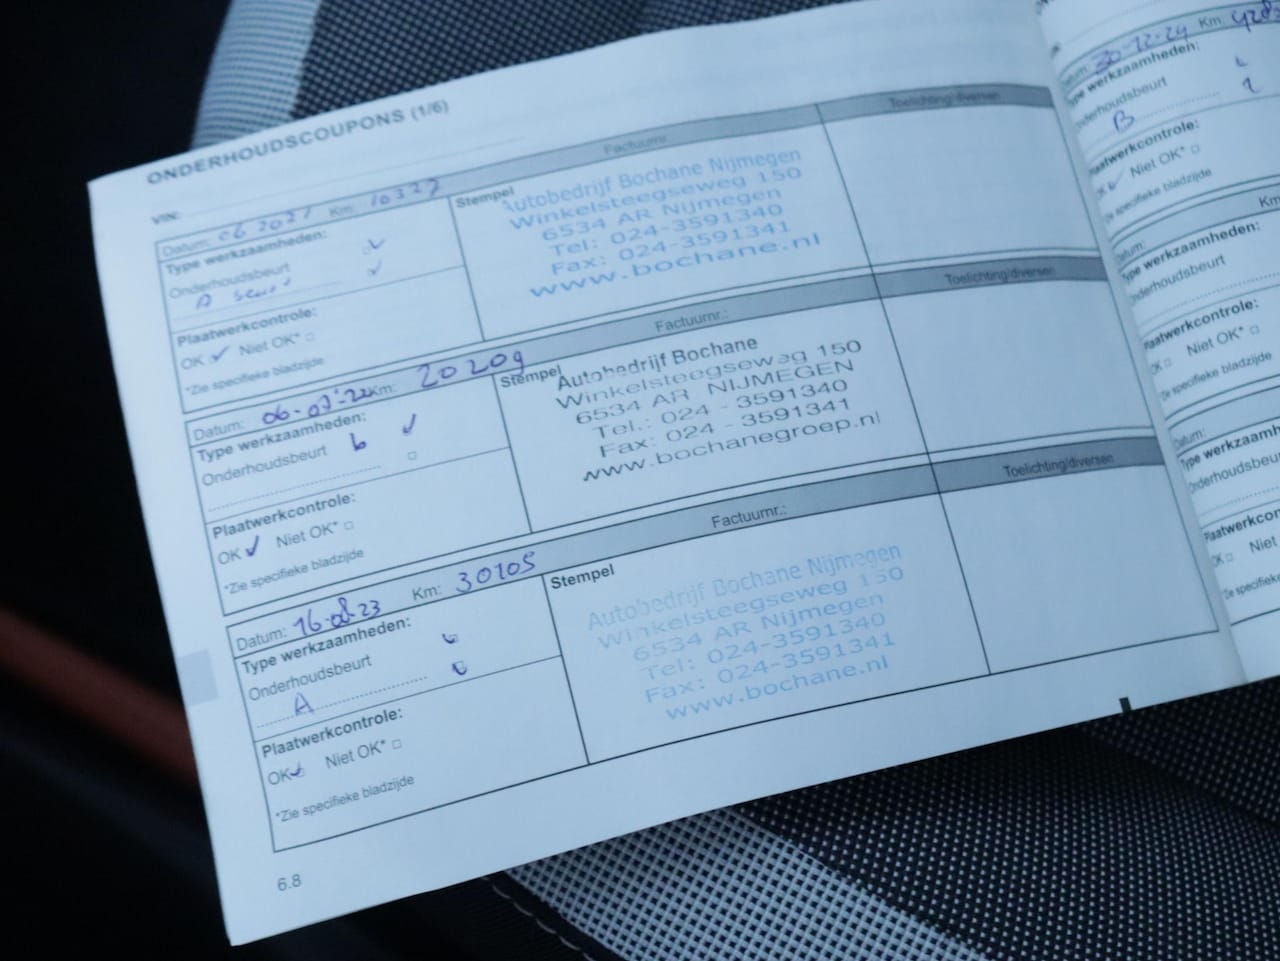 ONDERHOUDSCOUPONS (1/6)
VIN:
Datum: 06 2021 Km: 10327 Factuurnr.: Toelichting/diversen
Type werkzaamheden:
Onderhoudsbeurt
A
Plaatwerkcontrole:
OK Niet OK*
*Zie specifieke bladzijde
Stempel
Autobedrijf Bochane Nijmegen
Winkelsteegseweg 150
6534 AR Nijmegen
Tel: 024-3591340
Fax: 024-3591341
www.bochane.nl
Datum: 06-07-22 Km: 20209 Factuurnr.: Toelichting/diversen
Type werkzaamheden:
Onderhoudsbeurt
Plaatwerkcontrole:
OK Niet OK*
*Zie specifieke bladzijde
Stempel
Autobedrijf Bochane
Winkelsteegseweg 150
6534 AR NIJMEGEN
Tel.: 024 - 3591340
Fax: 024 - 3591341
www.bochanegroep.nl
Datum: 16-08-23 Km: 30105 Factuurnr.: Toelichting/diversen
Type werkzaamheden:
Onderhoudsbeurt
A
Plaatwerkcontrole:
OK Niet OK*
*Zie specifieke bladzijde
Stempel
Autobedrijf Bochane Nijmegen
Winkelsteegseweg 150
6534 AR Nijmegen
Tel: 024-3591340
Fax: 024-3591341
www.bochane.nl
6.8
30-12-24 Km:
werkzaamheden:
B
Niet OK*
specifieke bladzijde
Km
werkzaamheden:
Niet OK*
specifieke bladzijde
Niet